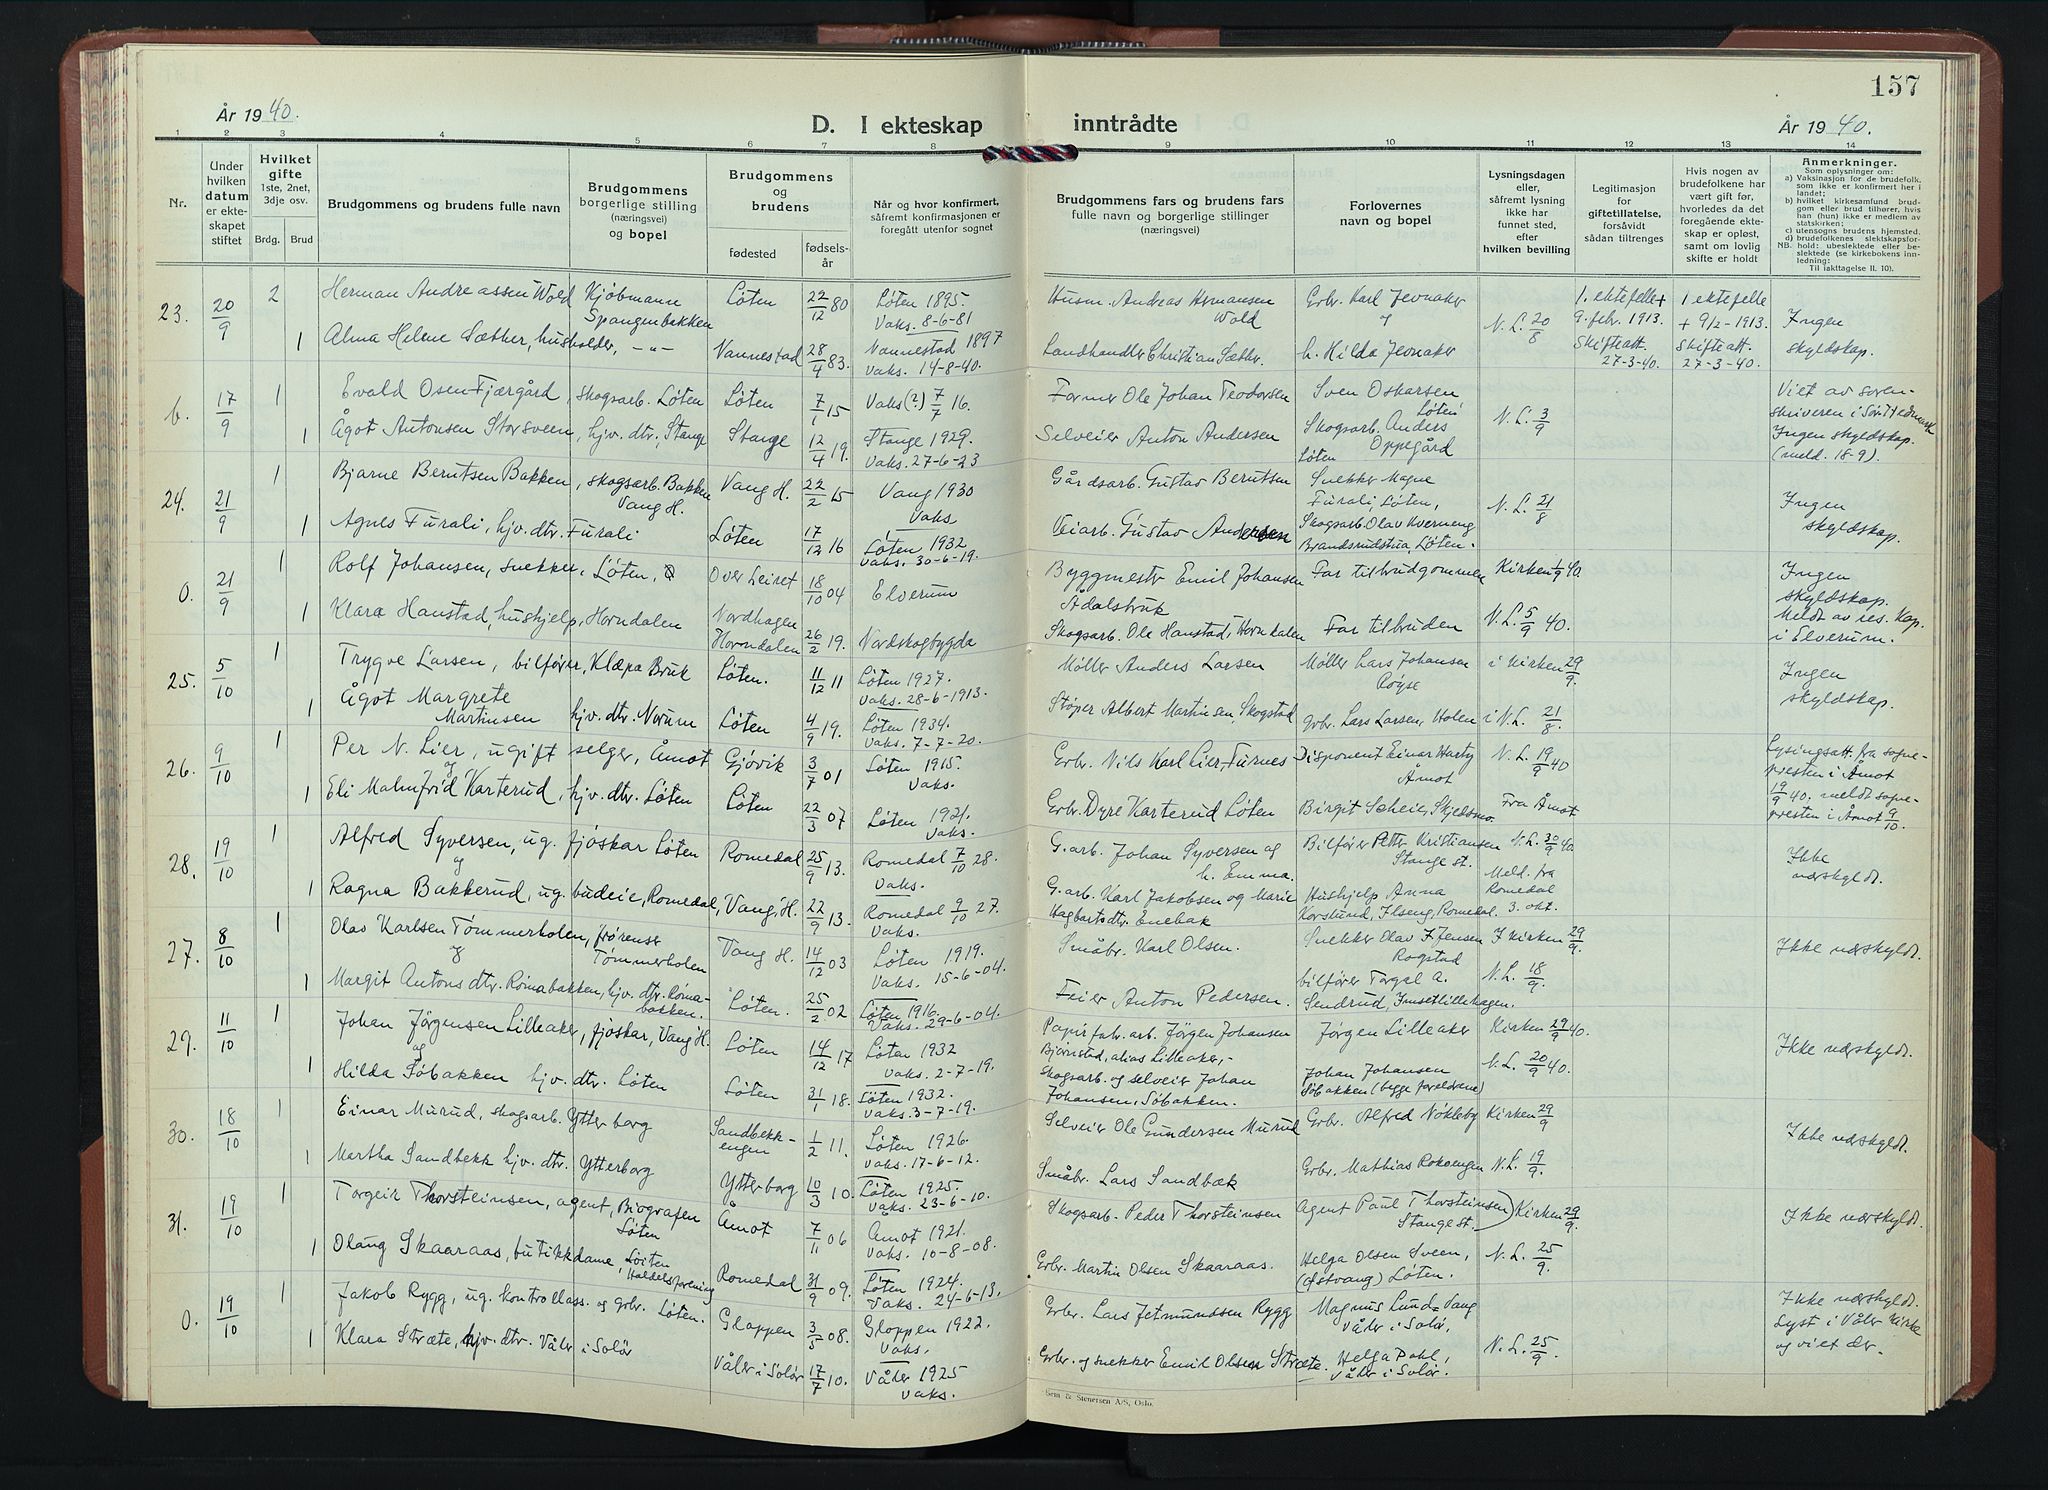 157
År 1940.
D. I ekteskap inntrådte
År 1940.
1 2 3 4 5 6 7 8 9 10 11 12 13 14
Nr.
Under hvilken datum er ekteskapet stiftet
Hvilket gifte 1ste, 2net, 3dje osv.
Brdg. Brud
Brudgommens og brudens fulle navn
Brudgommens borgerlige stilling (næringsvei) og bopel
Brudgommens og brudens
fødested
fødselsår
Når og hvor konfirmert, såfremt konfirmasjonen er foregått utenfor sognet
Brudgommens fars og brudens fars fulle navn og borgerlige stillinger (næringsvei)
Forlovernes navn og bopel
Lysningsdagen eller, såfremt lysning ikke har funnet sted, efter hvilken bevilling
Legitimasjon for giftetillatelse, forsåvidt sådan tiltrenges
Hvis nogen av brudefolkene har vært gift før, hvorledes da det foregående ekteskap er opløst, samt om lovlig skifte er holdt
Anmerkninger.
Som oplysning om:
a) Vaksinasjon for de brudefolk, som ikke er konfirmert her i landet;
b) hvilket kirkesamfund brudgom eller brud tilhører, hvis han (hun) ikke er medlem av statskirken;
c) utensogns brudens hjemsted.
d) brudefolkenes slektskapsforhold: ubeslektede eller beslektede (se kirkebokens innledning:
NB.
Til iakttagelse II. 10).
23. 20/9 2 Herman Andreassen Wold Kjøbmann Spangenbakken Løten 22/12 80 Løten 1895. Vaks. 8-6-81 Husm. Andreas Hermansen Wold Grbr. Karl Jevnaker N.L. 20/8 1. ektefelle + 9. febr. 1913. Skifteatt. 27-3-40. 1 ektefelle + 9/2-1913. Skifteatt. 27-3-40. Ingen skyldskap.
1 Alma Helene Sæther, husholder, -"- Nannestad 28/4 83. Nannestad 1897 Vaks. 14-8-40. Landhandler Christian Sæther. h. Hilda Jevnaker
b. 17/9 1 Evald Osen Fjærgård, skogsarb. Løten Løten 7/1 15 Vaks (?) 7/7 16. Former Ole Johan Teodorsen Sven Oskarsen Løten N.L. 3/9 Viet av sorenskriveren i Sør Hedmark Ingen skyldskap. (meld. 18-9).
1 Ågot Antonsen Storsveen, hjv. dtr, Stange Stange 12/4 19. Stange 1929. Vaks. 27-6-23 Selveier Anton Andersen Skogsarb. Anders Oppegård Løten
24. 21/9 1 Bjarne Berntsen Bakken, skogsarb. Bakken Vang H. Vang H. 22/2 15 Vang 1930 Vaks Gårdsarb. Gustav Berntsen Snekker Magne Furali, Løten, N.L. 21/8 Ingen skyldskap.
1 Agnes Furali, hjv. dtr. Furali Løten 17/12 16 Løten 1932 Vaks. 30-6-19. Veiarb. Gustav Andersen Skogsarb. Olav Kverneng Brandsrudstua, Løten.
0. 21/9 1 Rolf Johansen, snekker, Løten, Over Leiret 18/10 04 Elverum Byggmester Emil Johansen Ådalsbruk Far til brudgommen Kirken 1/9 40. Ingen skyldskap. Meldt av res. Kap. i Elverum.
1 Klara Hanstad, hushjelp, Horndalen Nordhagen Horndalen 26/2 19. Nordskogbygda Skogsarb. Ole Hanstad, Horndalen Far til bruden N.L. 5/9 40.
25. 5/10 1 Trygve Larsen, bilfører, Klæpa Bruk Løten. 11/12 11 Løten 1927. Vaks. 28-6-1913. Møller Anders Larsen Møller Lars Johansen Røyse i Kirken 29/9. Ingen skyldskap.
1 Ågot Margrete Martinsen hjv. dtr. Norum Løten 4/9 19. Løten 1934. Vaks. 7-7-20. Støper Albert Martinsen, Skogstad grbr. Lars Larsen, Holen i N.L. 21/8.
26. 9/10 1 Per N. Lier, ugift selger, Åmot Gjøvik 3/7 01 Løten 1915. Vaks. Grbr. Nils Karl Lier, Furnes Disponent Einar Hasty Åmot N.L. 19/9 40 Lysingsatt. fra sognepresten i Åmot 19/9 40. meldt sognepresten i Åmot 9/10.
og
1 Eli Malmfrid Karterud, hjv. dtr. Løten Løten 22/3 07 Løten 1921. Vaks. Grbr. Dyre Karterud Løten Birgit Scheie, Skjeldsmo Fra Åmot
28. 19/10 1 Alfred Syversen, ug. fjøskar Løten Romedal 25/9 13. Romedal 7/10 28. Vaks. G.arb. Johan Syversen og h. Emma. Bilfører Petter Kristiansen Stange st. N.L. 30/9 40 Meld. fra Romedal 3. okt. Ikke nærskyldt.
og
1 Ragna Bakkerud, ug. budeie, Romedal, Vang, H. 22/9 13. Romedal 9/10 27. Vaks. G.arb. Karl Jakobsen og Marie Hagbartsdtr. Enebak Hushjelp Anna Korslund, Ilseng, Romedal.
27. 8/10 1 Olav Karlsen Tømmerholen, frørenser Tømmerholen Vang H. 14/12 03 Løten 1919. Vaks. 15-6-04. Småbr. Karl Olsen. Snekker Olav F. Jensen Rogstad I Kirken 29/9. Ikke nærskyldt.
og
1 Margit Antons dtr. Rømabakken, hjv. dtr. Rømabakken. Løten. 25/2 02 Løten 1916. Vaks. 29-6-04. Feier Anton Pedersen. bilfører Torgal A. Sendrud, Imsetlillehagen. N.L. 18/9.
29. 11/10 1 Johan Jørgensen Lilleaker, fjøskar, Vang H. Løten 14/12 17 Løten 1932 Vaks. 2-7-19. Papirfabr. arb. Jørgen Johansen Bjørnstad, alias Lilleaker, - Jørgen Lilleaker Kirken 29/9 40. Ikke nærskyldt.
og
1 Hilda Søbakken hjv. dtr. Løten Løten 31/1 18. Løten 1932. Vaks. 3-7-19. Skogsarb. og selveier Johan Johansen, Søbakken. Johan Johansen Søbakken (begge foreldrene) N.L. 20/9 40.
30. 18/10 1 Einar Murud, skogsarb. Ytterborg Sandbekkengen 1/2 11. Løten 1926. Vaks. 17-6-12. Selveier Ole Gundersen Murud Grbr. Alfred Nøkleby Kirken 29/9 Ikke nærskyldt.
1 Martha Sandbekk hjv. dtr. Ytterborg Ytterborg 10/3 10. Løten 1925. Vaks. 23-6-10. Småbr. Lars Sandbæk Grbr. Mathias Rokoengen N.L. 19/9.
31. 19/10 1 Torgeir Thorsteinsen, agent, Biografen Løten Åmot 7/11 06 Åmot 1921. Vaks. 10-8-08. Skogsarb. Peder Thorsteinsen Agent Paul Thorsteinsen Stange st. Kirken 29/9. Ikke nærskyldt.
1 Olaug Skaaraas, butikkdame, Løiten Handelsforening Romedal 31/9 09. Løten 1924. Vaks. 24-6-13. Grbr. Martin Olsen Skaaraas. Helga Olsen Sveen, (Østvang) Løten. N.L. 25/9.
0. 19/10 1 Jakob Rygg, ug. kontrollass. og grbr. Løten. Gloppen 3/5 08. Gloppen 1922. Vaks. Grbr. Lars Jetmundsen Rygg Magnus Lund=Vang Våler i Solør, Ikke nærskyldt. Lyst i Våler Kirke og viet der.
1 Klara Stræte, hjv. dtr. Våler i Solør Våler i Solør 17/7 10. Våler 1925 Vaks. Grbr. og snekker Emil Olsen Stræte. Helga Dahl, Våler i Solør. N.L. 25/9.
Sem & Stenersen A/S, Oslo.